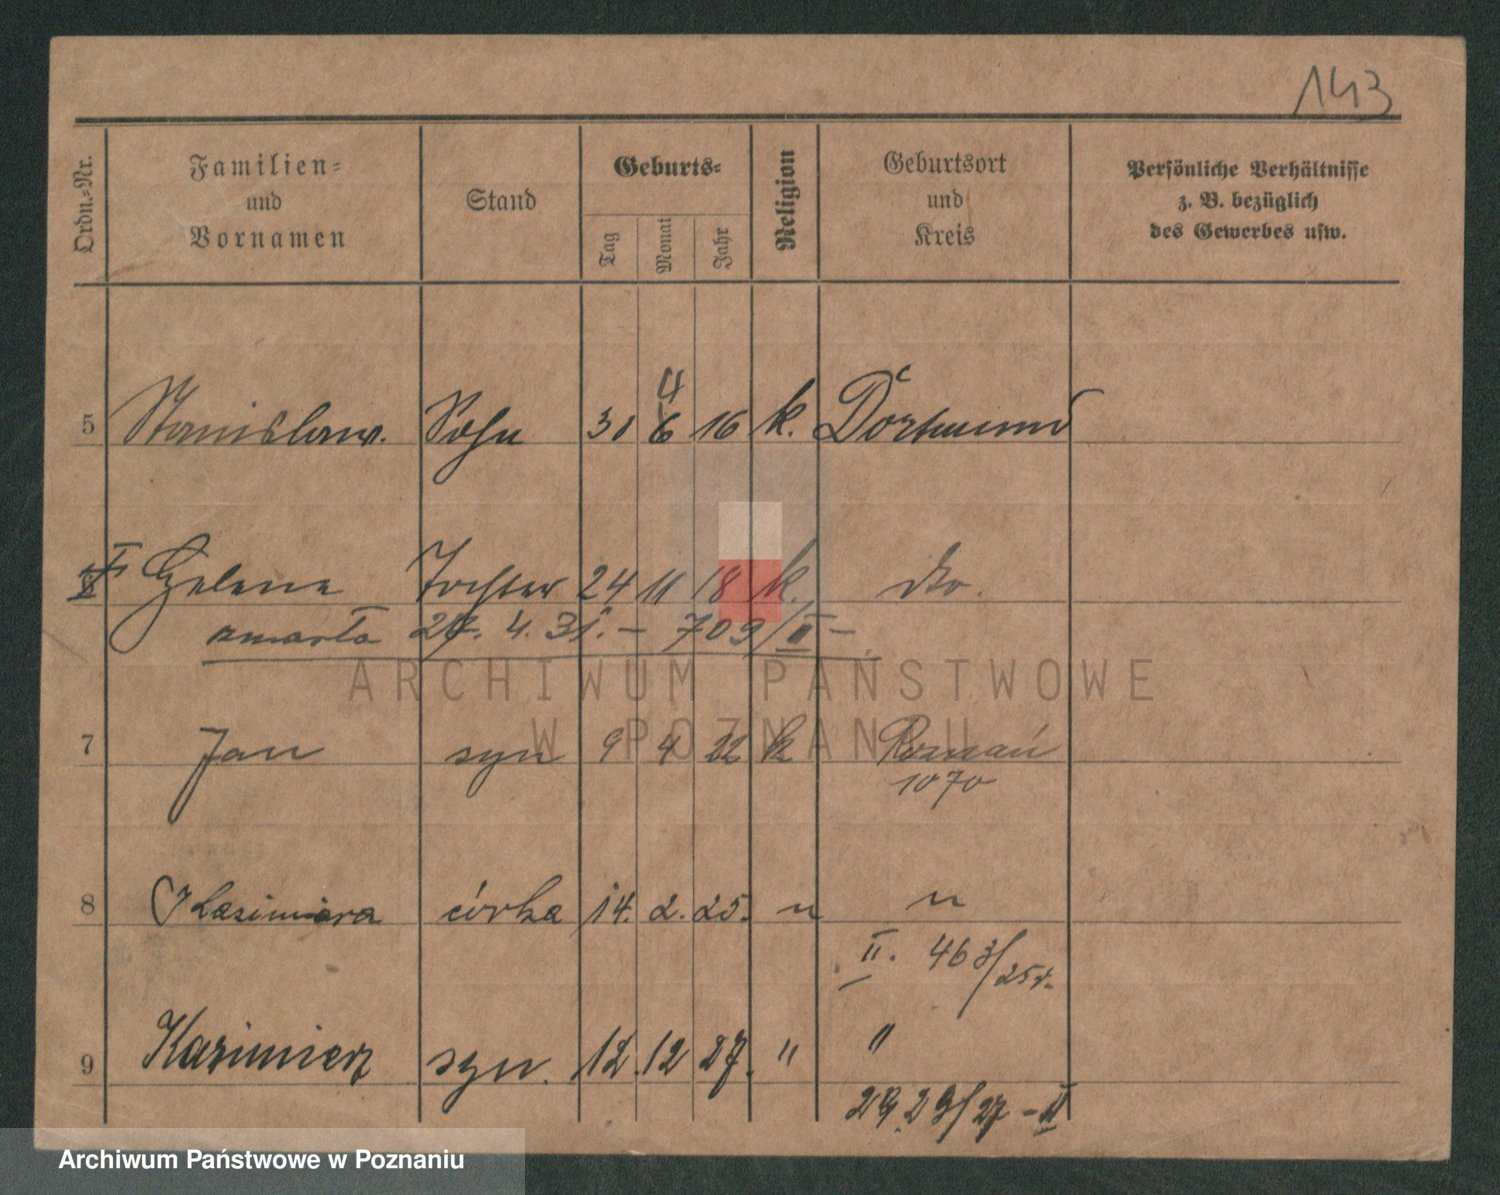 143
Ordn.-Nr.
Familien-
und
Vornamen
Stand
Geburts-
Tag
Monat
Jahr
Religion
Geburtsort
und
Kreis
Persönliche Verhältnisse
z. B. bezüglich
des Gewerbes usw.
4
5 Stanislaw. Sohn 30 6 16 k. Dortmund
Helene Tochter 24 11 18 k. dto.
zmarła 27. 4. 31. – 709/II –
ARCHIWUM PAŃSTWOWE
W POZNANIU
7 Jan syn 9 4 22 k Poznań
1070
8 Kazimiera córka 14. 2. 25. " "
II. 463/25 r.
9 Kazimierz syn. 12. 12 27. " "
2929/27 – II
Archiwum Państwowe w Poznaniu